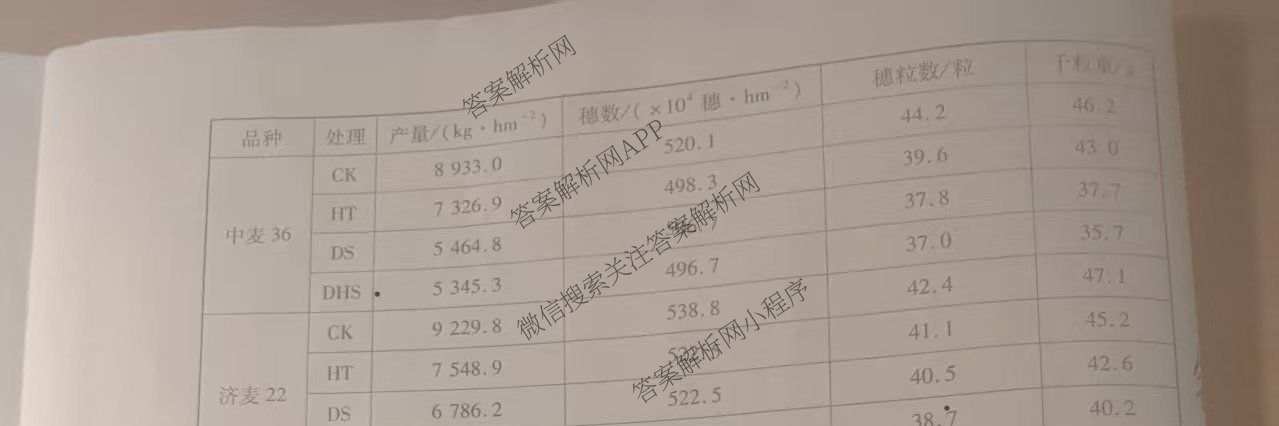 品种 处理 产量/(kg·hm⁻²) 穗数/(×10⁴ 穗·hm⁻²) 穗粒数/粒 千粒重/g
中麦36 CK 8 933.0 520.1 44.2 46.2
HT 7 326.9 498.3 39.6 43.0
DS 5 464.8 37.8 37.7
DHS 5 345.3 496.7 37.0 35.7
济麦22 CK 9 229.8 538.8 42.4 47.1
HT 7 548.9 41.1 45.2
DS 6 786.2 522.5 40.5 42.6
38.7 40.2
答案解析网
答案解析网APP
微信搜索关注答案解析网
答案解析网小程序